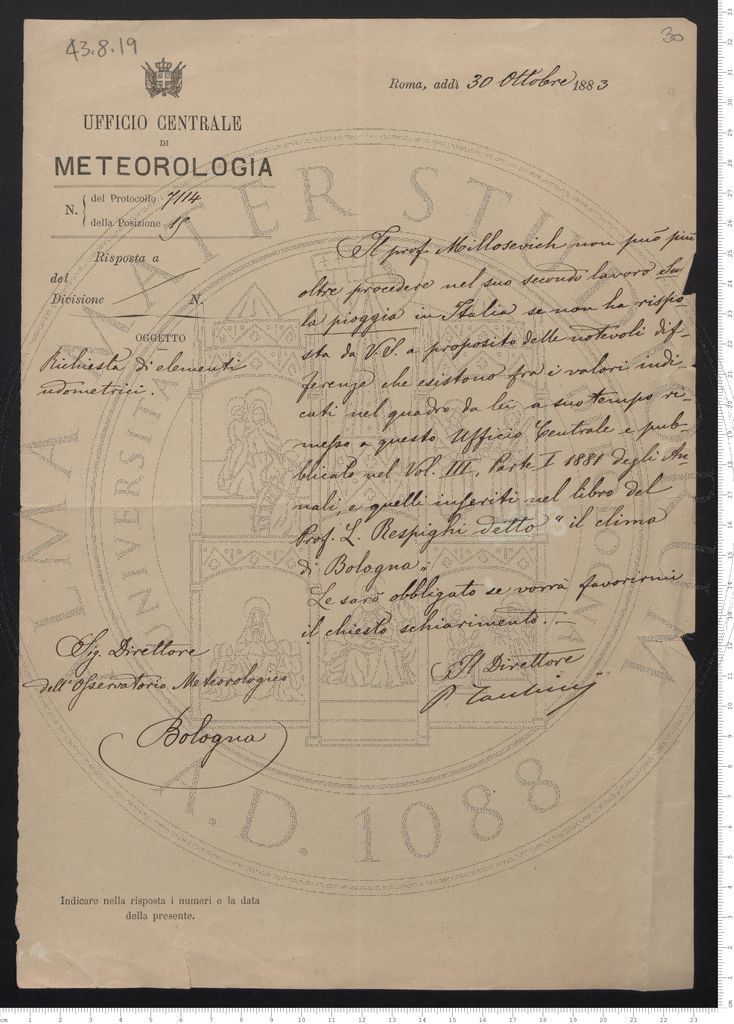 43.8.19
30
Roma, addì 30 Ottobre 1883
UFFICIO CENTRALE
DI
METEOROLOGIA
N. del Protocollo 7114
della Posizione 15
Risposta a
del
Divisione N.
OGGETTO
Richiesta di elementi
udometrici.
Il prof. Millosevich non può più
oltre procedere nel suo secondo lavoro Sul
la pioggia in Italia se non ha rispo
sta da V.S. a proposito delle notevoli dif-
ferenze che esistono fra i valori indi-
cati nel quadro da lei a suo tempo ri-
messo a questo Ufficio Centrale e pub-
blicato nel Vol. III, Parte I 1881 degli An-
nali, e quelli inseriti nel libro del
Prof. L. Respighi detto "il clima
di Bologna„
Le sarò obbligato se vorrà favorirmi
il chiesto schiarimento.
Il Direttore
P. Tacchini
Sig. Direttore
dell'Osservatorio Meteorologico
Bologna
Indicare nella risposta i numeri e la data
della presente.
ALMA MATER STUDIORUM
A.D. 1088